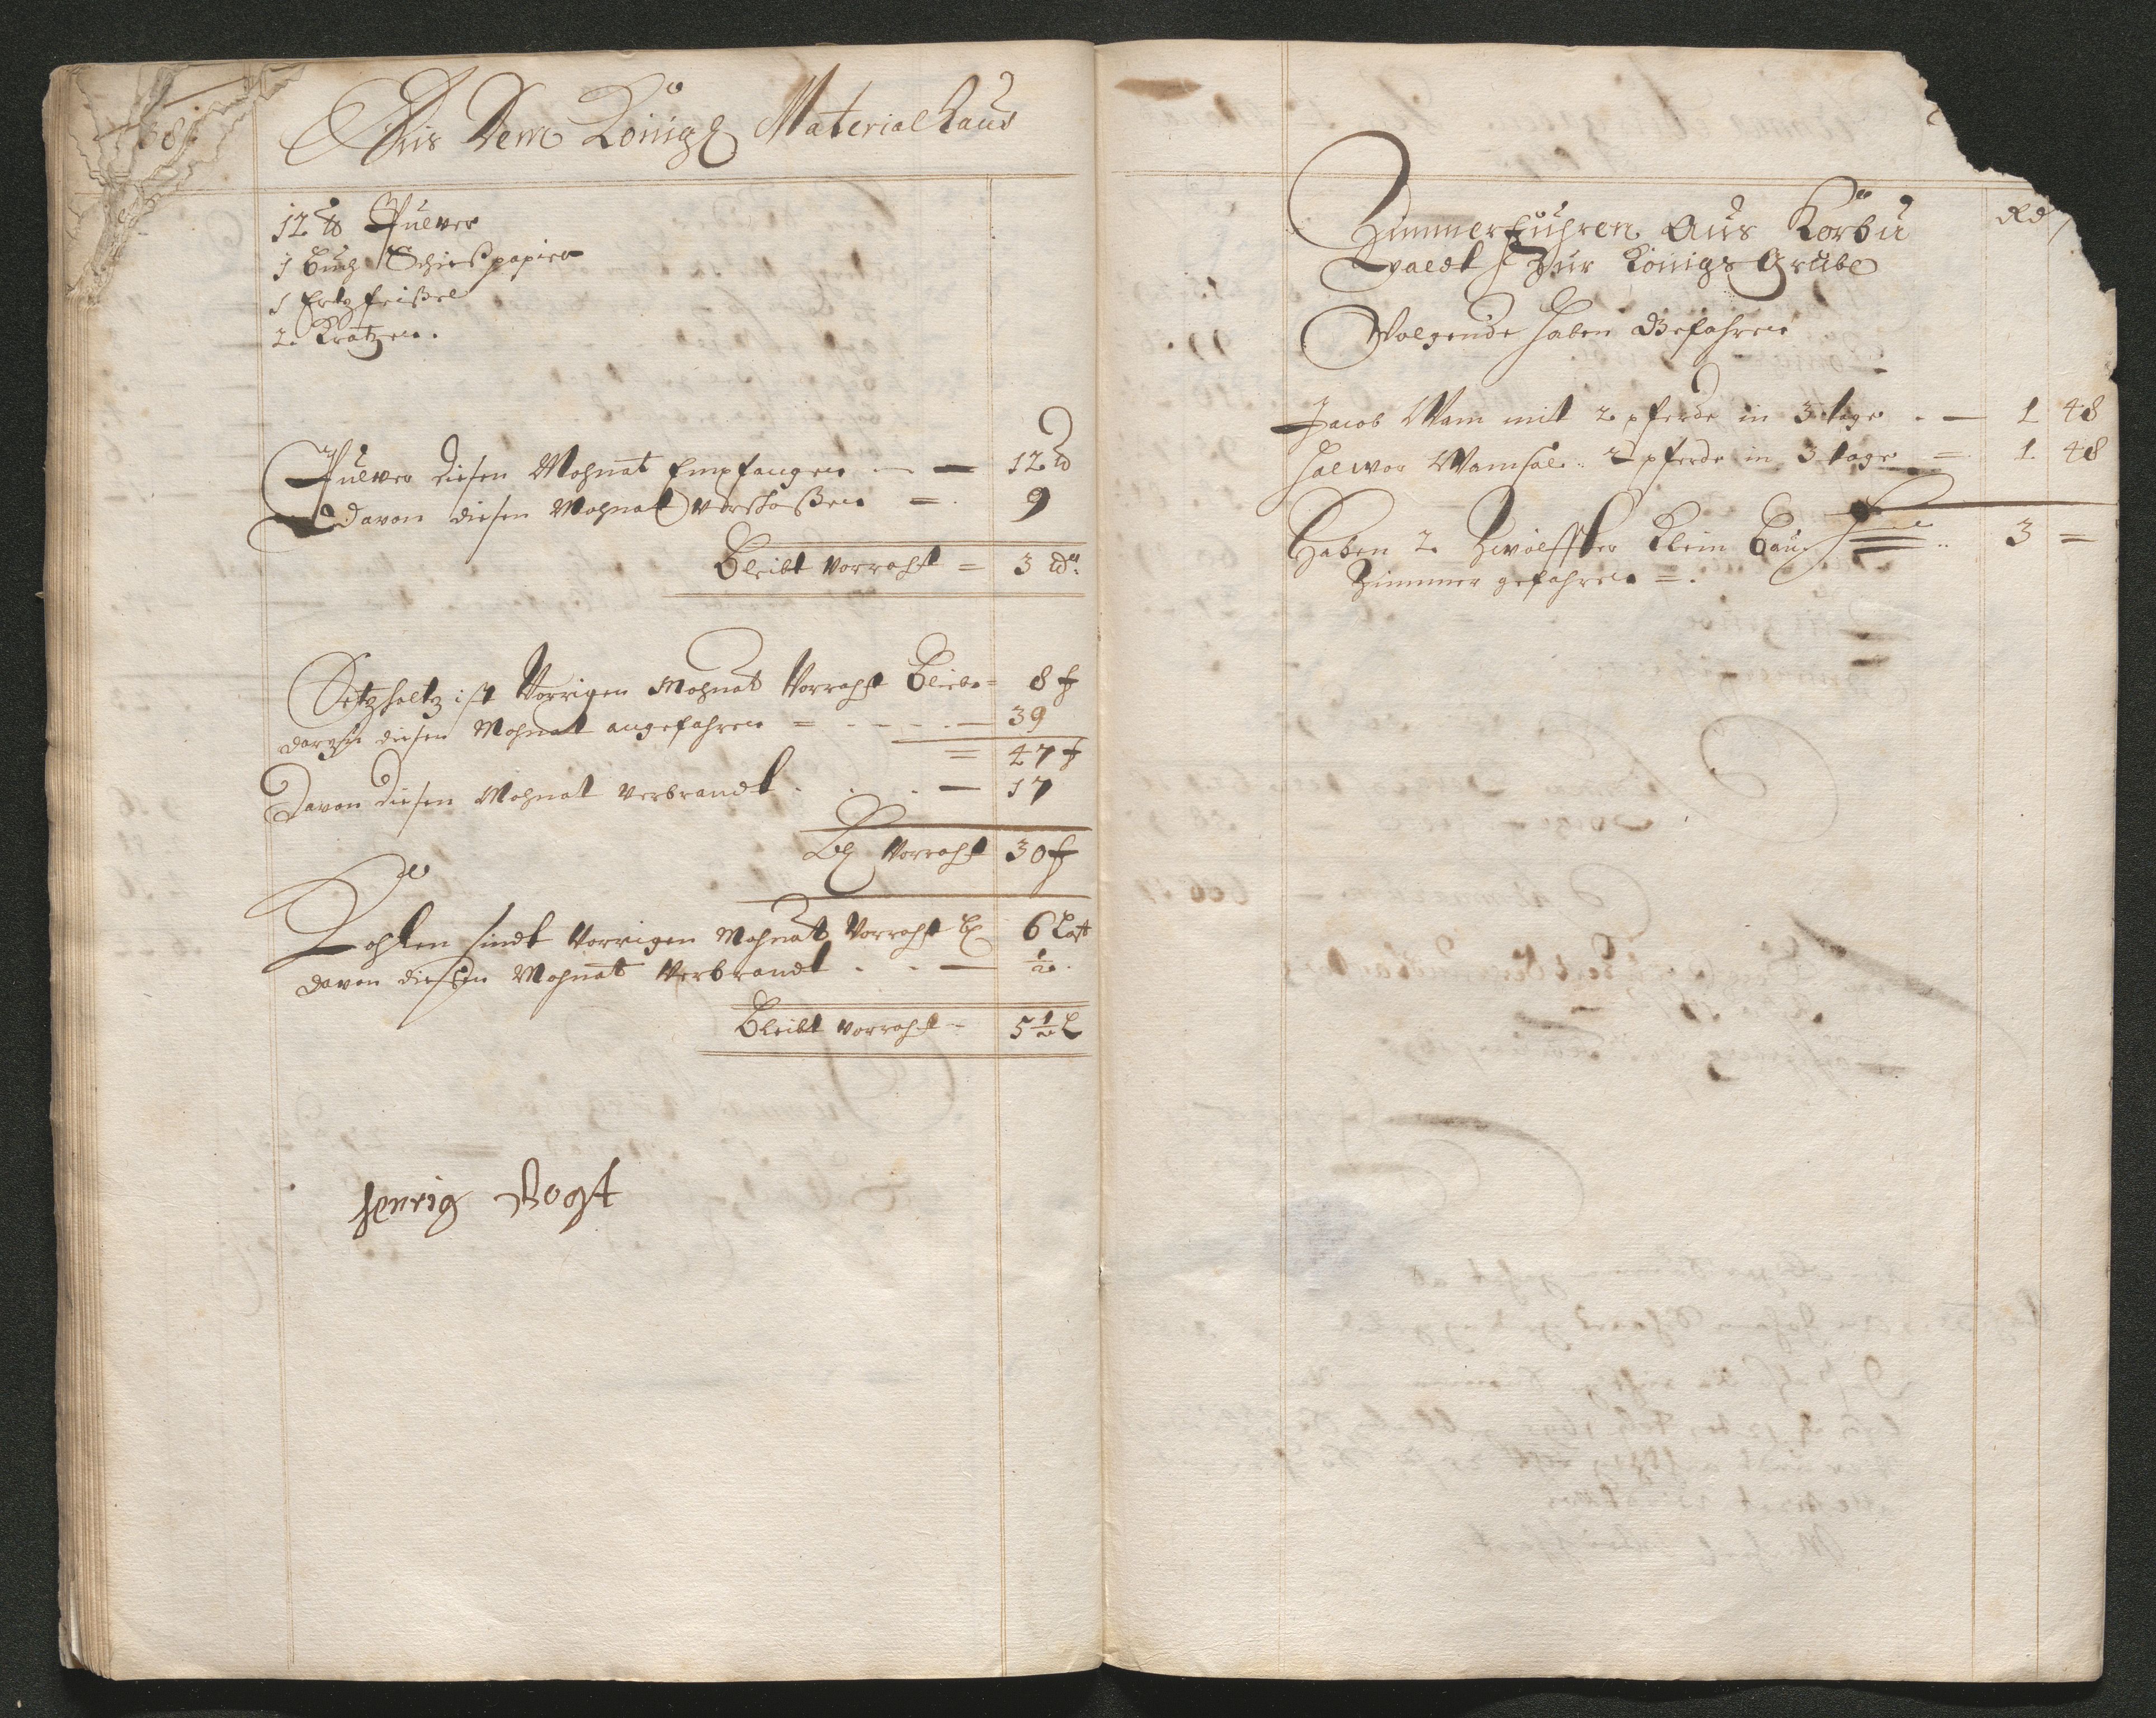 38
Aus Dem Königl Materialhaus
12 ℔ Pulver
1 Buch Schießpapier
1
2. Kratzen.
Pulver diesen Mohnat Empfangen — — 12 ℔
Davon diesen Mohnat verschoßen = . 9
Bleibt Vorraht = 3 ℔
Setzholtz ist Vorrigen Mohnat Vorraht Blieb = 8 f
darzu diesen Mohnat angefahren = . - - . — 39
= 47 f
Davon diesen Mohnat verbrandt . . . — 17
Bl Vorraht 30 f
Kohlen sindt Vorrigen Mohnat Vorraht bl 6 Last
davon diesen Mohnat Verbrandt . . — ½.
Bleibt Vorraht = 5 ½ L
Henrig Vogt
Zimmerführen Aus Körbu
Waldt Zur Königs Grube
Volgende haben Gefahren
Rd
Jacob Wam mit 2 pferde in 3 tage . — 1 48
Halvor Wamsal .. 2 pferde in 3 tage = 1 48
Haben 2. Zwölffter klein Bau 3 =
Zimmer gefahren = .